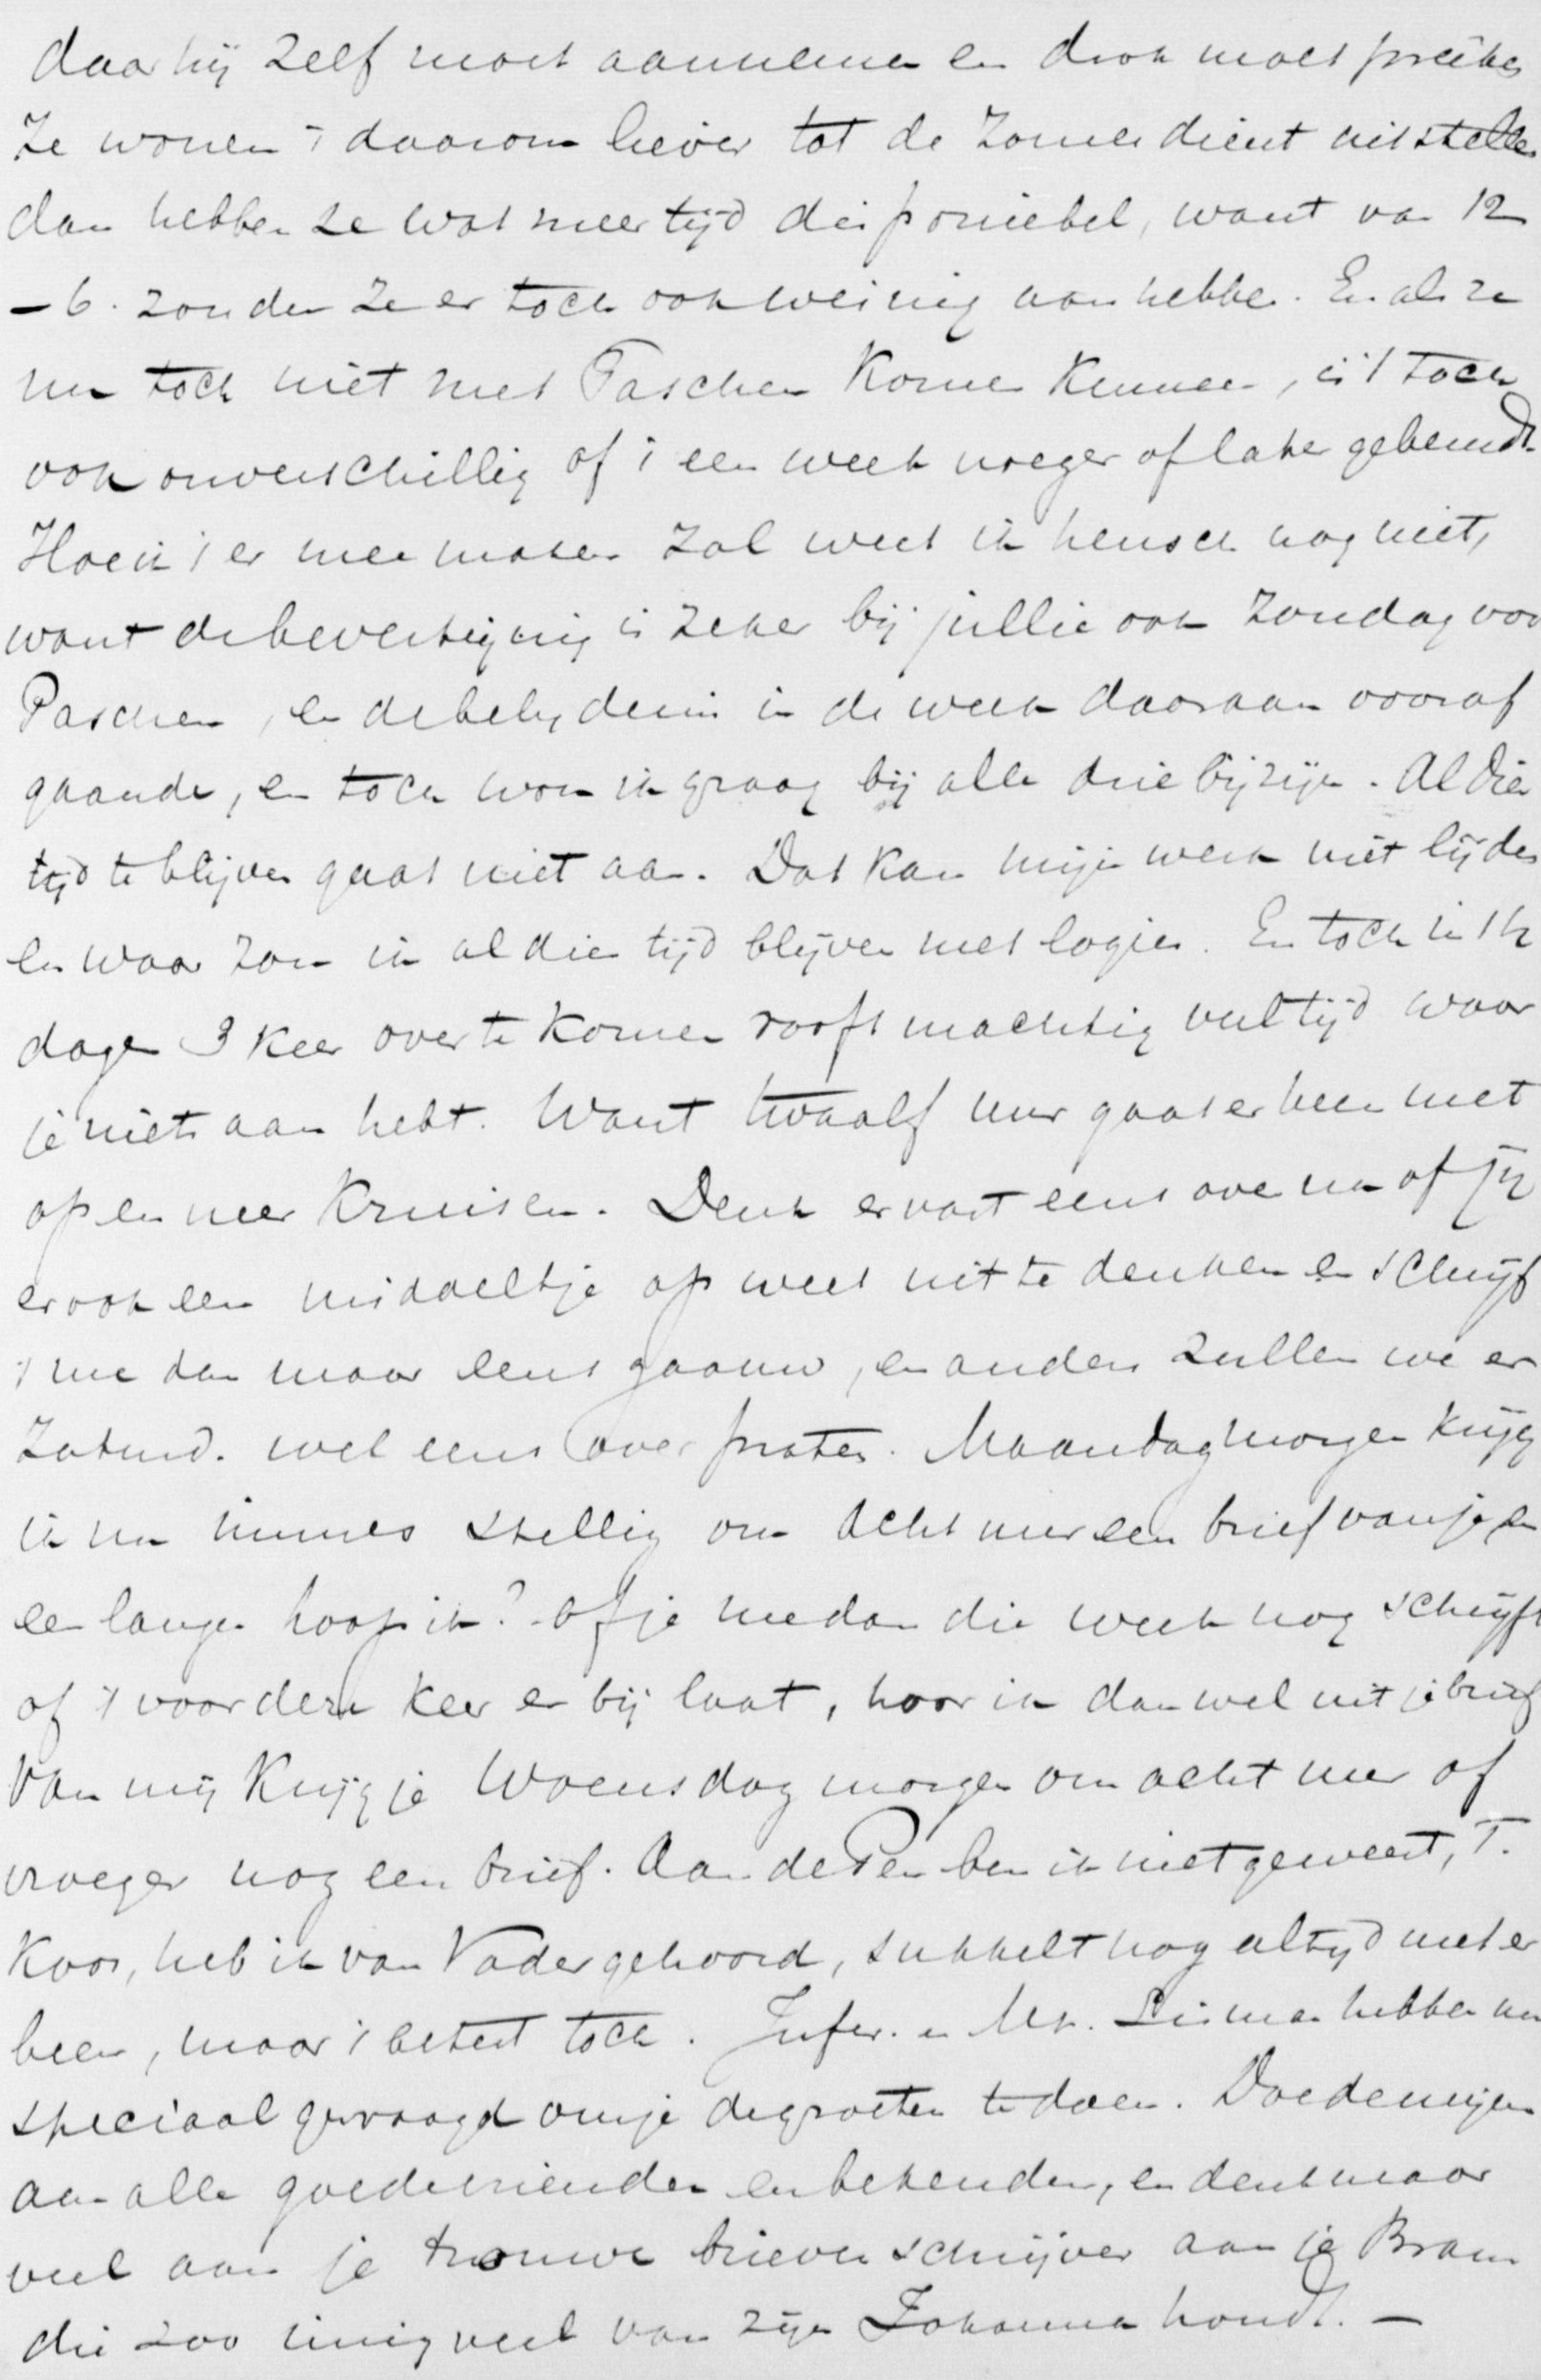 daar hij zelf moet aannemen en druk moet preeken
Ze wouen 't daarom liever tot de Zomerdienst uitstellen
dan hebben ze wat meer tijd disponiebel, want van 12
– 6. zouden ze er toch ook weinig aan hebben. En als ze
nu toch niet met Paschen Komen Kunnen, is 't toch
ook onverschillig of 't een week vroeger of later gebeurdt.
Hoe ik 't er mee maken zal weet ik heusch nog niet,
want de bevestiging is zeker bij jullie ook Zondag voor
Paschen, en de belydenis in de week daaraan vooraf
gaande, en toch wou ik graag bij alle drie bij zijn. Al dien
tijd te blijven gaat niet aan. Dat kan mijn werk niet lijden
en waar zou ik al dien tijd blijven met logies. En toch in 14
dagen 3 keer over te komen rooft machtig veel tijd waar
je niets aan hebt. Want twaalf uur gaat er heen met
op en neer Kruisen. Denk er vast eens over na of jij
er ook een middeltje op weet uit te denken en schrijf
't me dan maar eens gaauw, en anders zullen we er
Zaturd. wel eens over praten. Maandagmorgen Krijg
ik nu immes stellig om acht uur een brief van je en
een lange hoop ik? Of je me dan die week nog schrijft
of 't voor deze keer er bij laat, hoor ik dan wel uit je brief
Van mij Krijg je Woensdag morgen om acht uur of
vroeger nog een brief. Aan de Pen ben ik niet geweest, T.
Koos, heb ik van Vader gehoord, sukkelt nog altyd met er
been, maar 't betert toch. Jufer. en Mr. hebben me
speciaal gevraagd om je de groeten te doen. Doe de mijne
aan alle goede vrienden en bekenden, en denk maar
veel aan je trouwe brieven schrijver aan je Bram
die zoo innig veel van zijn Johanna houdt. —